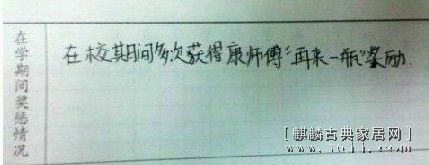 在学期间奖惩情况
在校期间多次获得康师傅“再来一瓶”奖励.
[麒麟古典家居网]